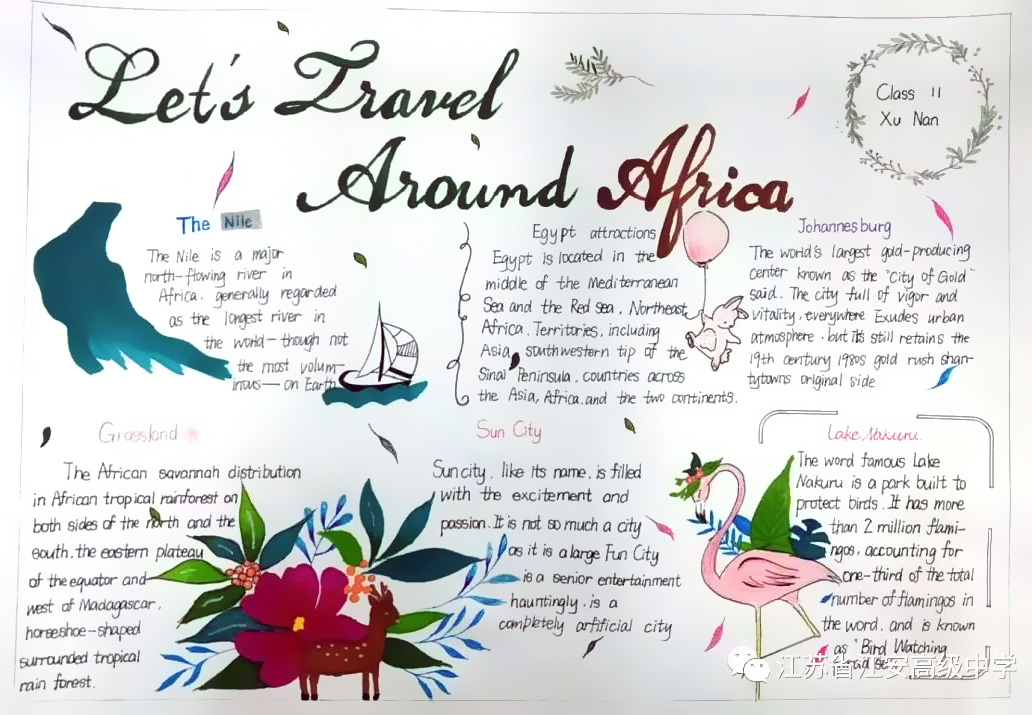 Let's Travel
Around Africa
Class 11
Xu Nan
The Nile
The Nile is a major
north-flowing river in
Africa, generally regarded
as the longest river in
the world-though not
the most volum-
inous-on Earth
Egypt attractions
Egypt is located in the
middle of the Mediterranean
Sea and the Red Sea, Northeast
Africa. Territories, including
Asia, southwestern tip of the
Sinai Peninsula, countries across
the Asia, Africa, and the two continents.
Johannesburg
The world's largest gold-producing
center known as the "City of Gold"
said. The city full of vigor and
vitality, everywhere Exudes urban
atmosphere, but its still retains the
19th century 1980s gold rush shan-
tytowns original side
Grassland
The African savannah distribution
in African tropical rainforest on
both sides of the north and the
south, the eastern plateau
of the equator and
west of Madagascar,
horseshoe-shaped
surrounded tropical
rain forest.
Sun City
Sun city, like its name, is filled
with the excitement and
passion. It is not so much a city
as it is a large Fun City
is a senior entertainment
hauntingly, is a
completely arfificial city
Lake Nakuru.
The word famous Lake
Nakuru is a park built to
protect birds. It has more
than 2 million flami-
ngos, accounting for
one-third of the total
number of flamingos in
the word, and is known
as "Bird Watching
江苏省江安高级中学